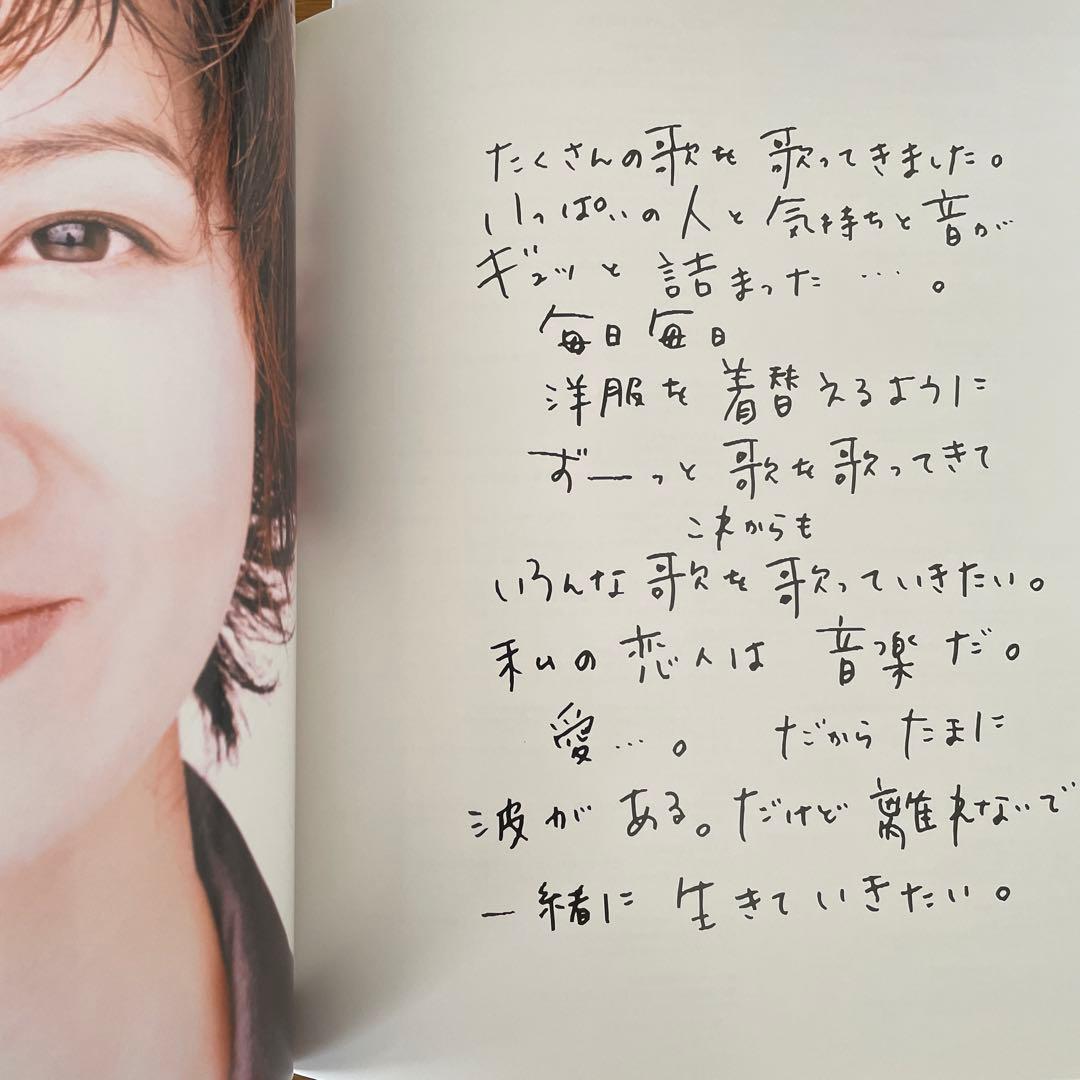 たくさんの歌を歌ってきました。
いっぱいの人と気持ちと音が
ギュッと詰まった…。
毎日毎日
洋服を着替えるように
ずーっと歌を歌ってきて
これからも
いろんな歌を歌っていきたい。
私の恋人は音楽だ。
愛…。だからたまに
波がある。だけど離れないで
一緒に生きていきたい。